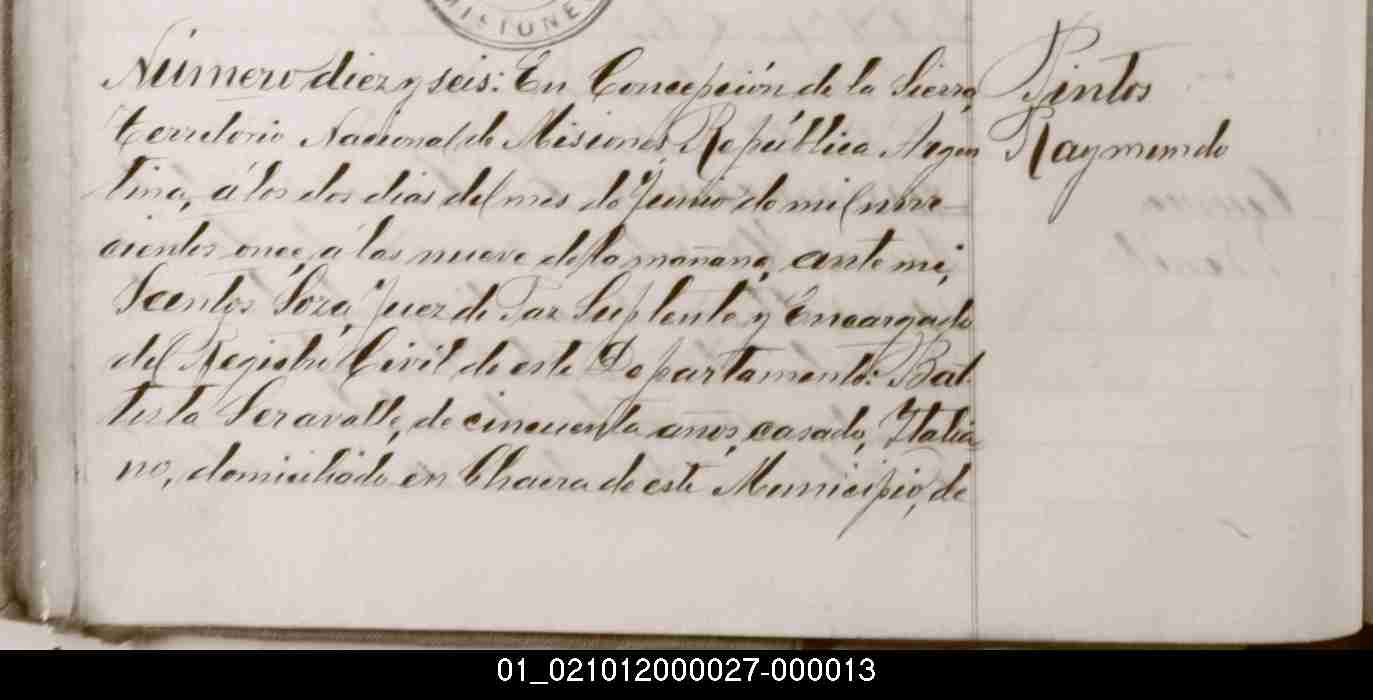 MISIONES
Número diez y seis: En Concepción de la Sierra,
Territorio Nacional de Misiones República Argen
tina, á los dos dias del mes de Junio de mil nove
cientos once, á las nueve de la mañana, ante mi,
Santos Soza, Juez de Paz Suplente y Encargado
del Registro Civil de este Departamento: Bat
tista Seravalle, de cincuenta años, casado, Italia
no, domiciliado en Chacra de este Municipio, de
Pintos
Raymundo
01_021012000027-000013